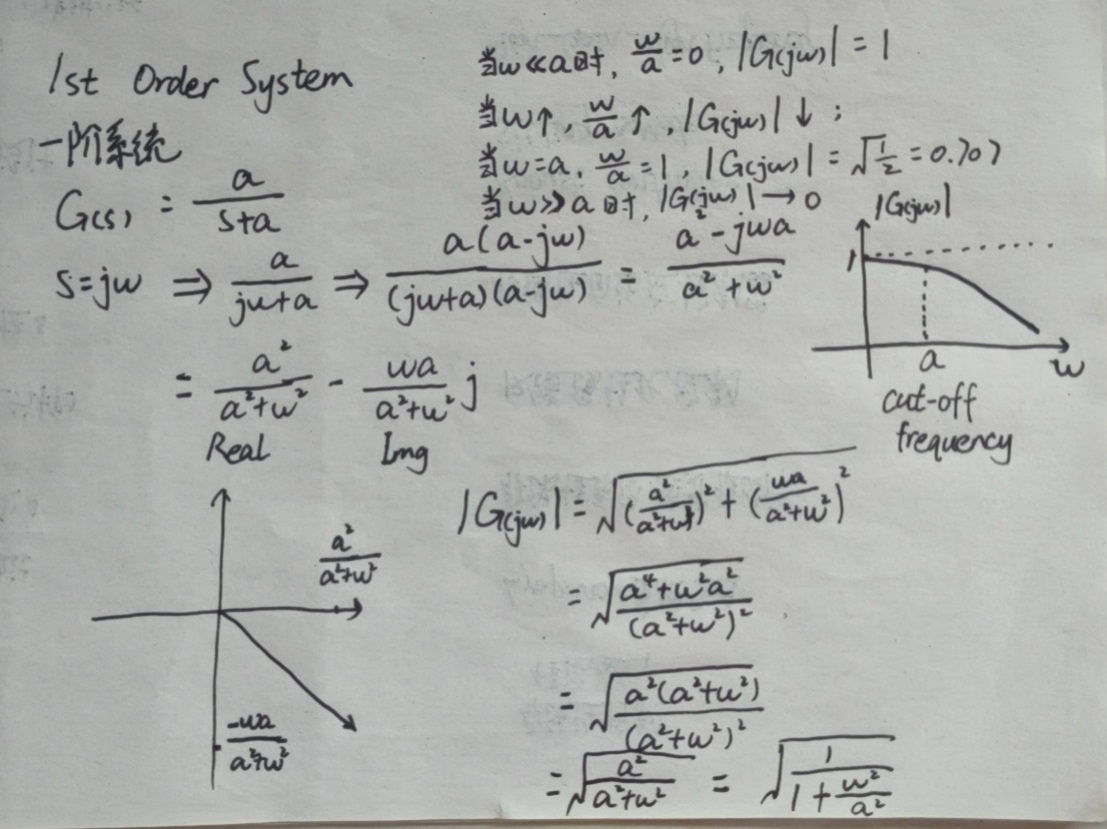 1st Order System
一阶系统
G(s) = a/(s+a)
s=jw ⇒ a/(jw+a) ⇒ a(a-jw)/((jw+a)(a-jw)) = (a²-jwa)/(a²+w²)
= a²/(a²+w²) - wa/(a²+w²) j
Real Img
当w≪a时, w/a=0, |G(jw)| = 1
当w↑, w/a ↑, |G(jw)| ↓;
当w=a, w/a=1, |G(jw)| = √(1/2) = 0.707
当w≫a时, |G(jw)| → 0
|G(jw)|
1
a
w
cut-off
frequency
a²/(a²+w²)
-wa/(a²+w²)
|G(jw)| = √((a²/(a²+w²))² + (wa/(a²+w²))²)
= √((a⁴+w²a²)/(a²+w²)²)
= √(a²(a²+w²)/(a²+w²)²)
= √(a²/(a²+w²)) = √(1/(1+w²/a²))